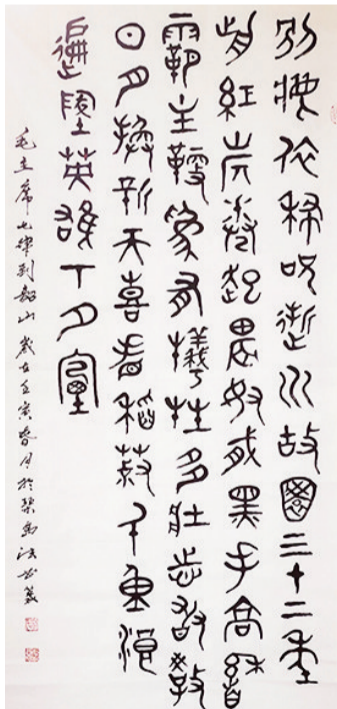 別夢依稀咒逝川故園三十二年
前紅旗卷起農奴戟黑手高懸
霸主鞭為有犧牲多壯志敢教
日月換新天喜看稻菽千重浪
遍地英雄下夕煙
毛主席七律到韶山歲在壬寅春月於琴島